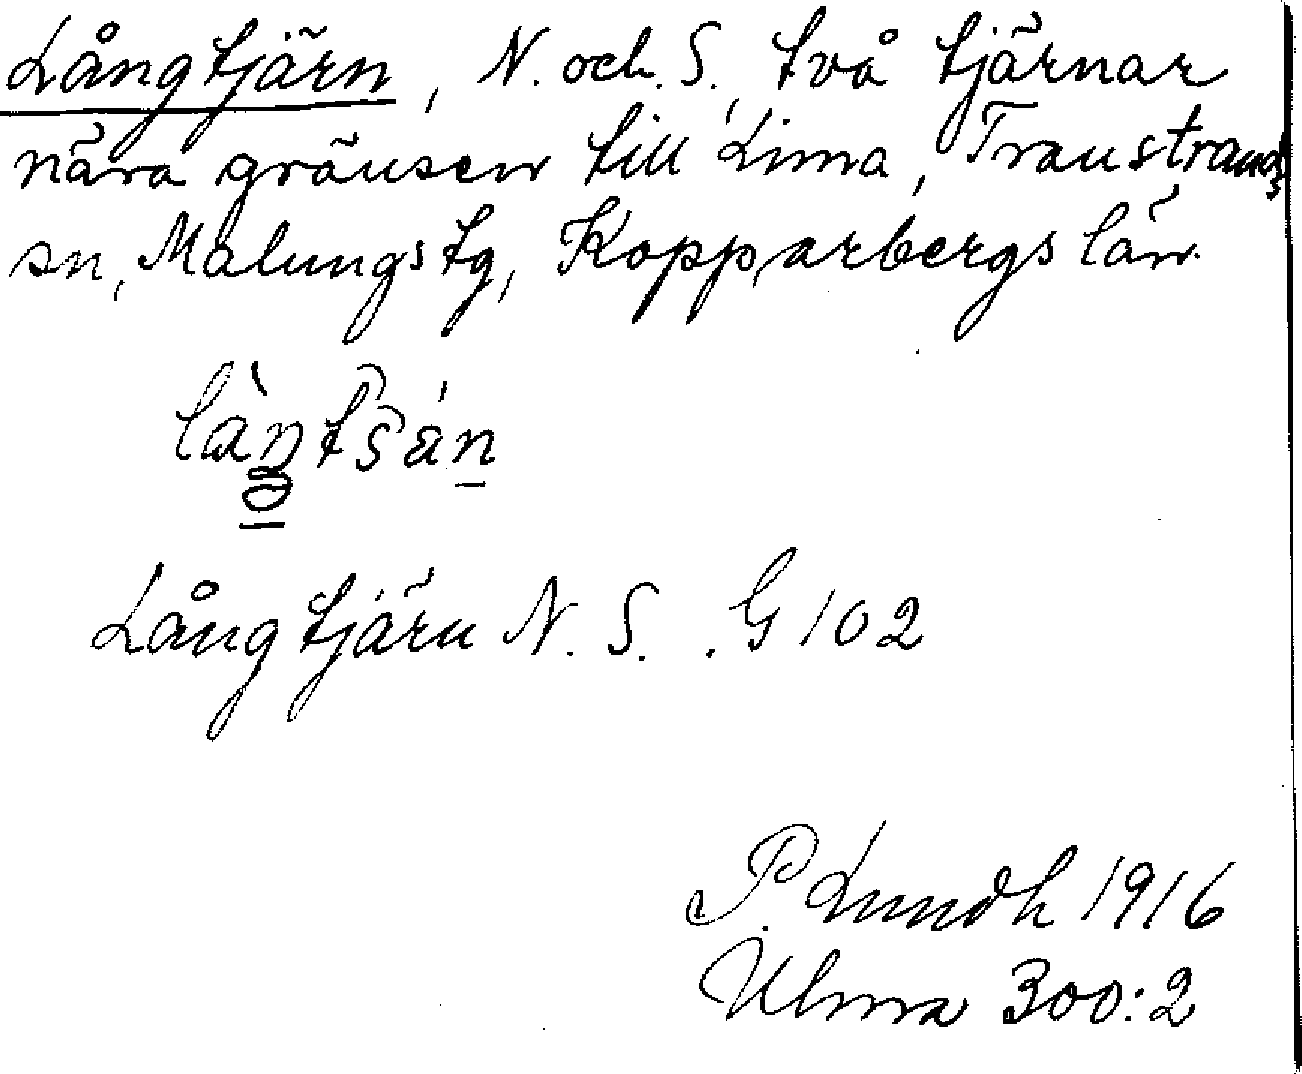 Långtjärn, N. och. S., två tjärnar
nära gränsen till Lima, Transtrands
sn, Malungs tg, Kopparbergs län.
Långtjärn N. S. . G 102
P. Lundh 1916
Ulma 300:2